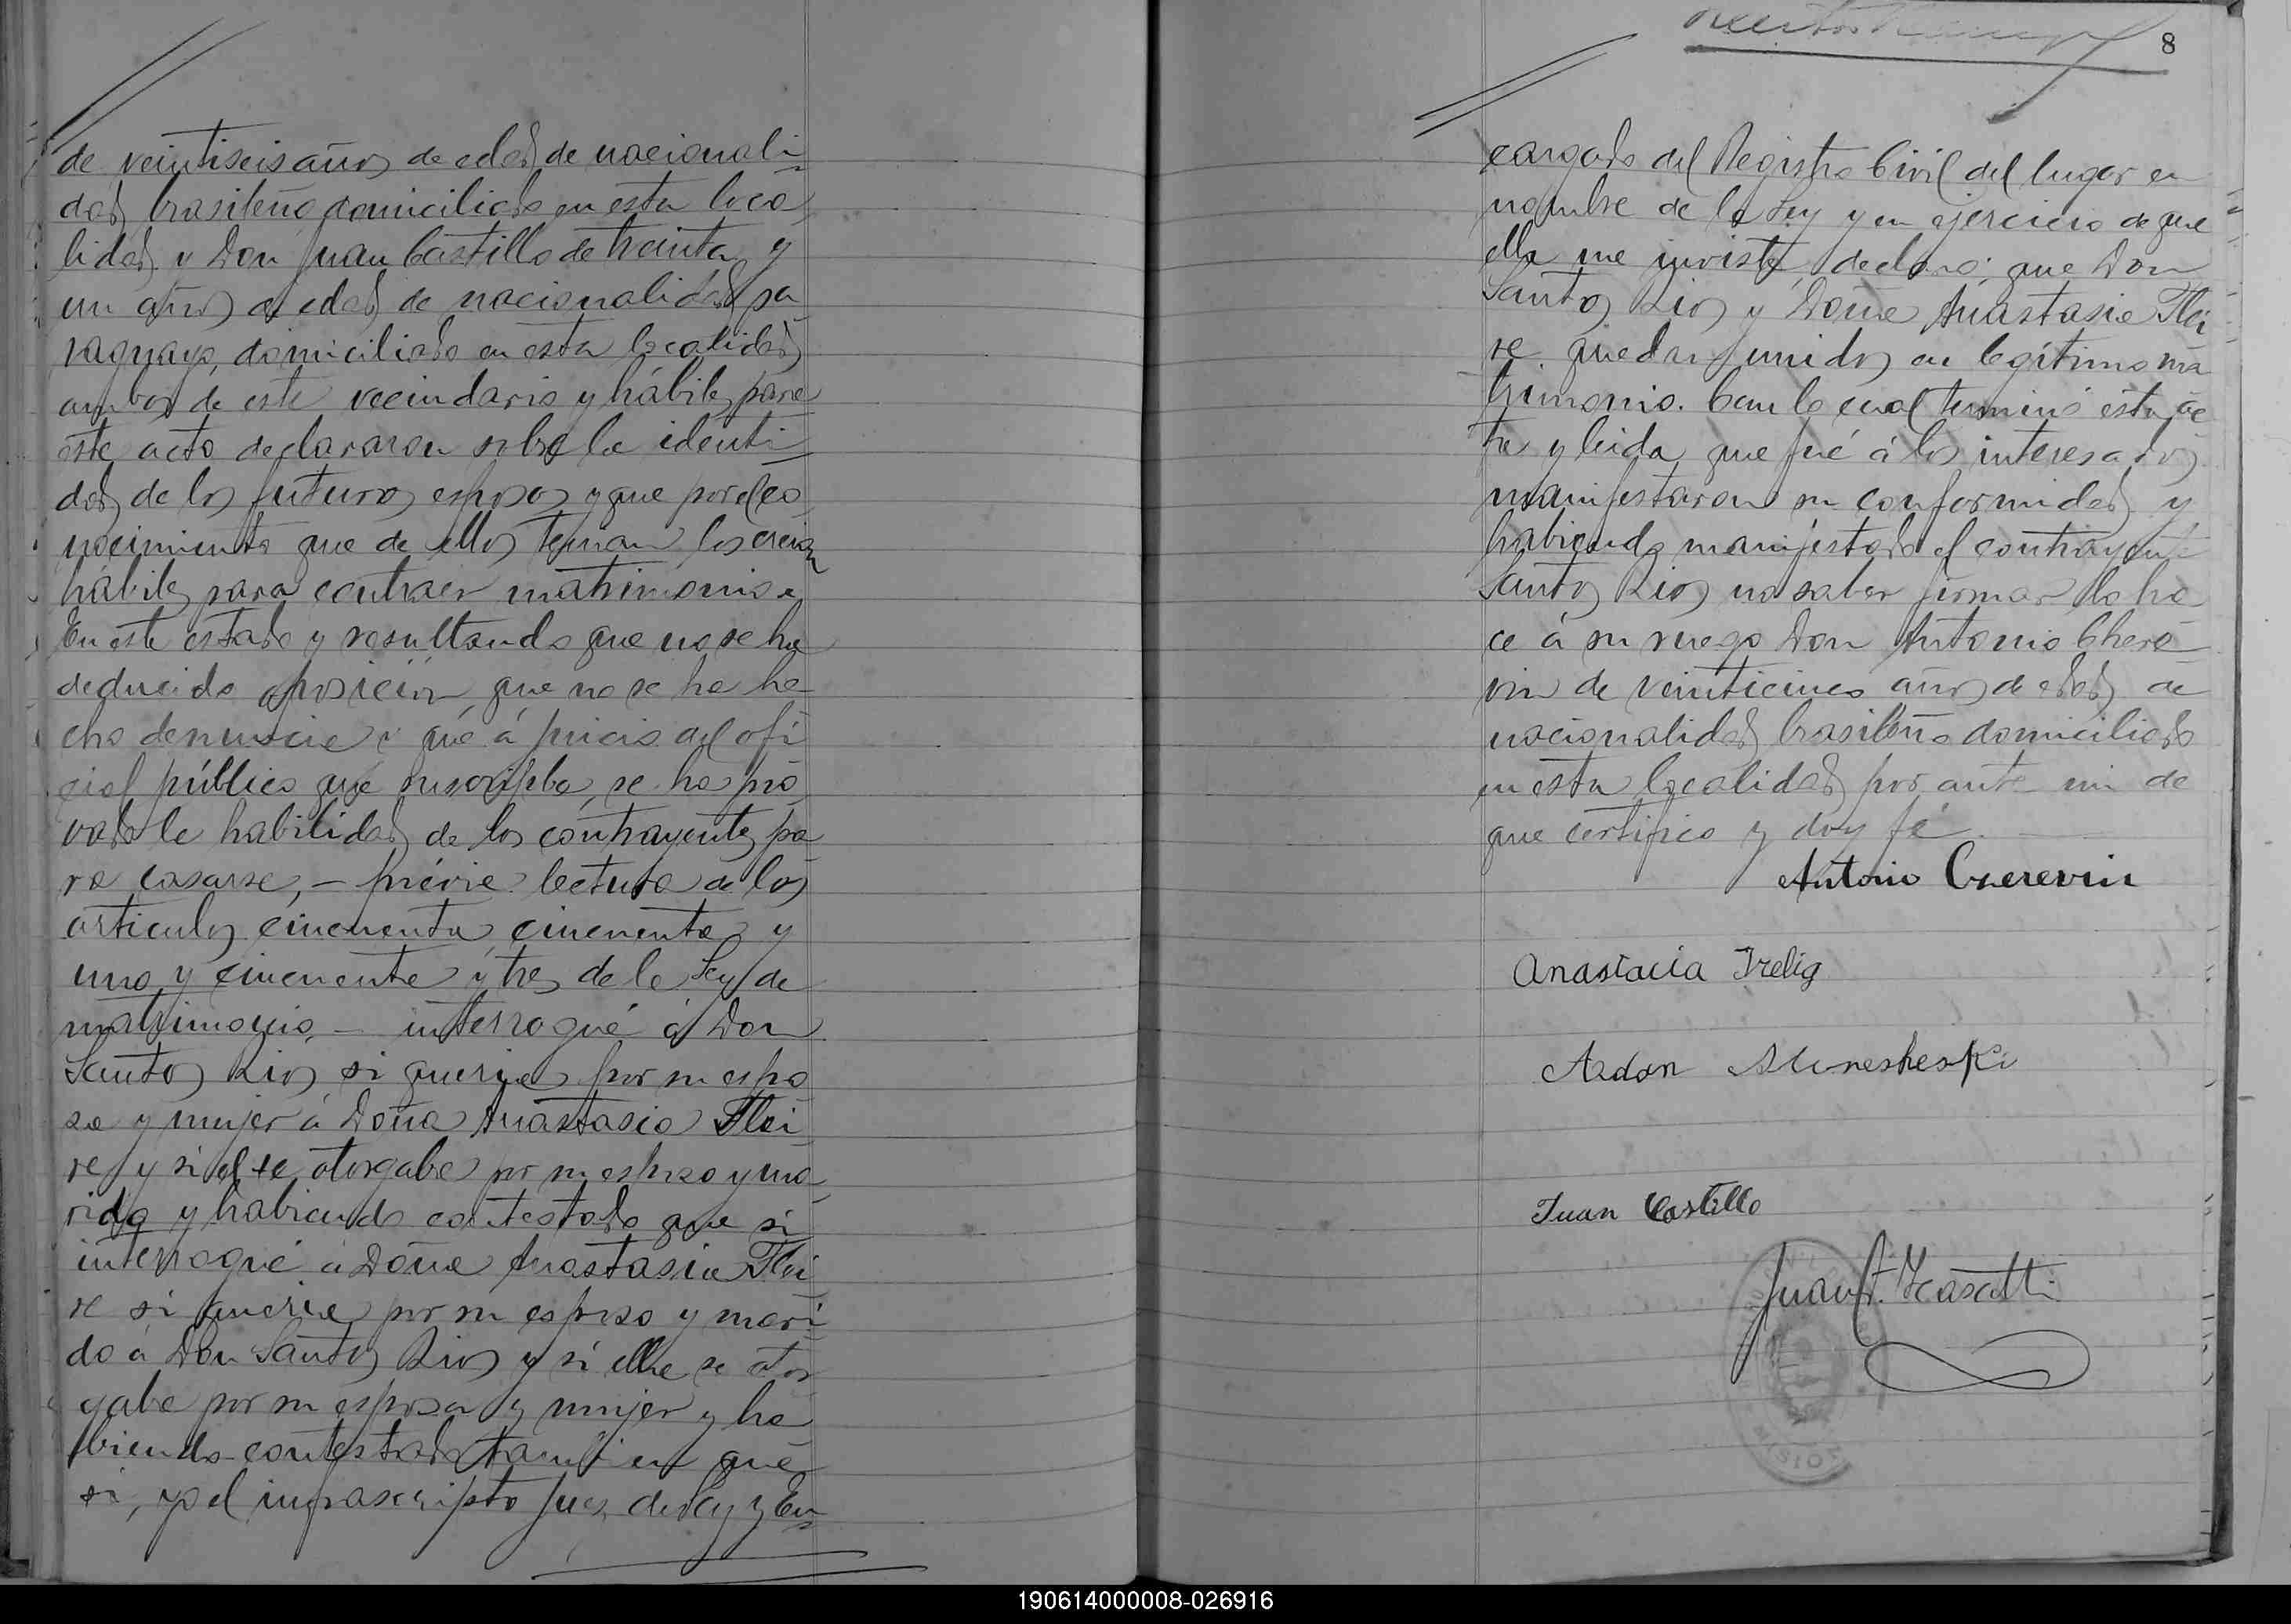 de veintiseis años de edad de nacionali-
dad brasileño domiciliado en esta loca-
lidad y Don Juan Castillo de treinta y
un años de edad de nacionalidad pa-
raguayo, domiciliado en esta localidad
ambos de este vecindario y hábiles para
este acto declararon sobre la identi-
dad de los futuros esposos y que por el co-
nocimiento que de ellos tenian los creian
hábiles para contraer matrimonio.
En este estado y resultando que no se ha
deducido oposición, que no se ha he-
cho denuncia y qué á juicio del ofi-
cial público que suscribe, se ha pro-
vado la habilidad de los contrayentes pa-
ra casarse, – prévia lectura de los
articulos cincuenta, cincuenta y
uno y cincuenta y tres de la Ley de
matrimonio, – interrogué á Don
Santos Rios si queria por su espo-
sa y mujer á Doña Anastasia Flei-
re y si el se otorgaba por su esposo y ma-
rido y habiendo contestado que si
interrogué á Doña Anastasia Flei-
re si queria por su esposo y mari-
do á Don Santos Rios y si ella se otor-
gaba por su esposa y mujer y ha-
biendo contestado tambien que
si, yo el infrascripto Juez de Ley y En-
8
cargado del Registro Civil del lugar en
nombre de la Ley y en ejercicio de que
ella me inviste, declaro; que Don
Santos Rios y Doña Anastasia Flei-
re quedan unidos en legítimo ma-
trimonio. Con lo cual terminó esta ac-
ta y leida que fué á los interesados
manifestaron su conformidad y
habiendo manifestado el contrayente
Santos Rios no saber firmar lo ha-
ce á su ruego Don Antonio Chere-
vin de veinticinco años de edad de
nacionalidad brasileño domiciliado
en esta localidad por ante mi de
que certifico y doy fé.
Antonio Czerevin
Anastacia Frelig
Juan Castillo
190614000008-026916